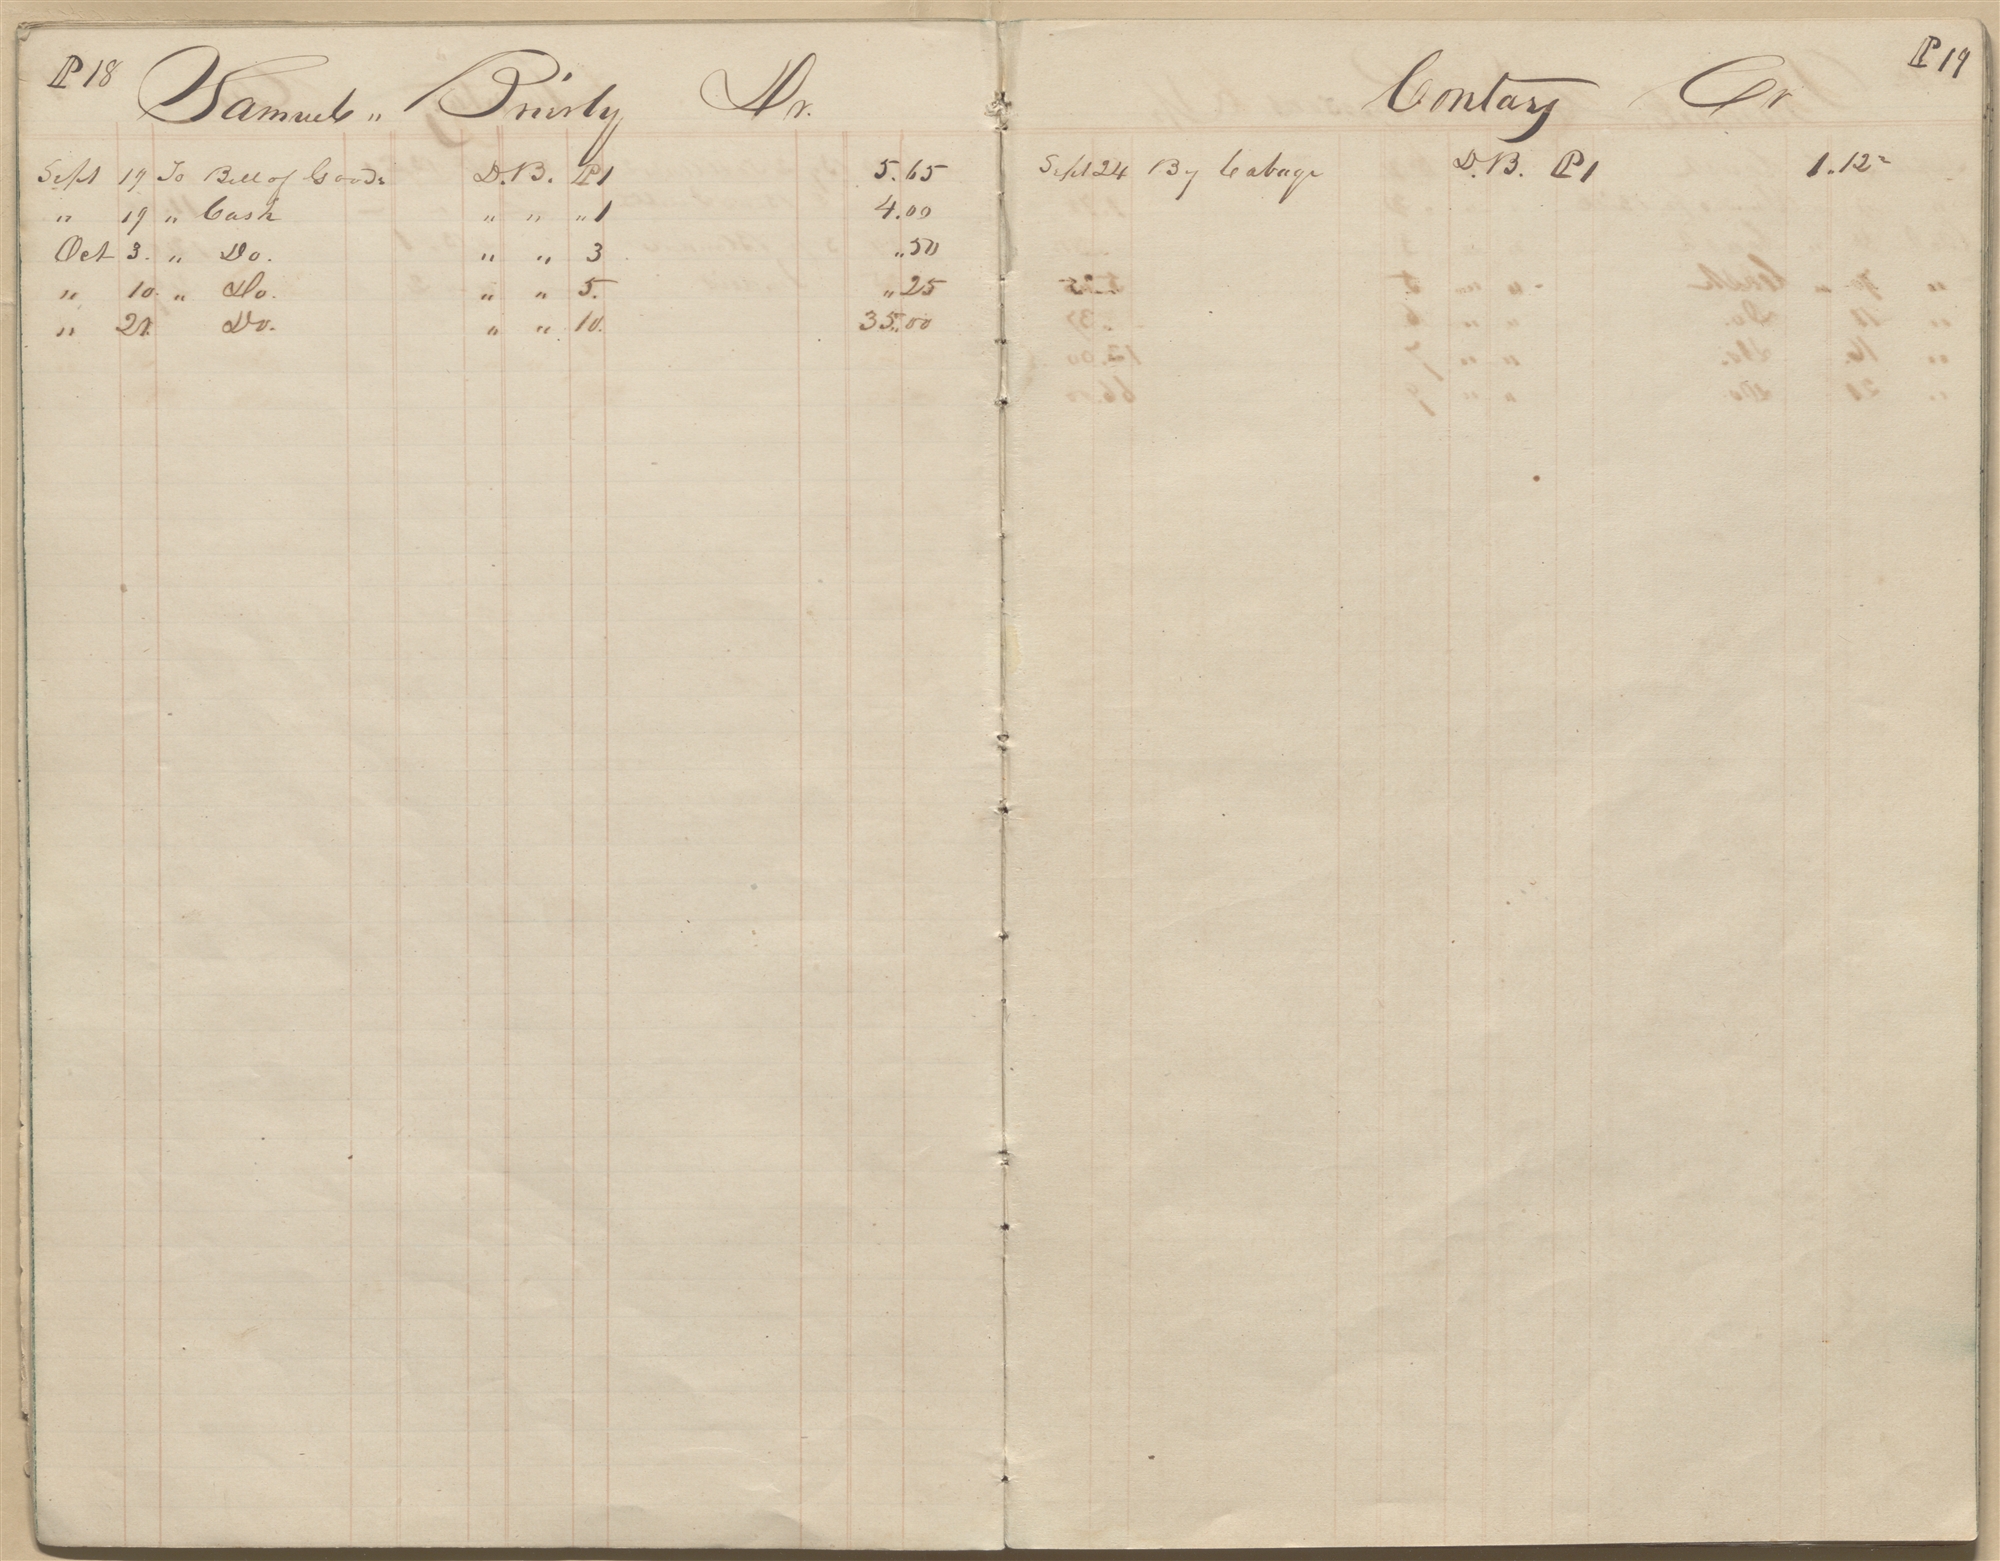 P 18 Samuel " Dr.
Sept 19 To Bill of Goods D.B. P 1 5.65
" 19 " Cash " " " 1 4.00
Oct 3. " Do. " " 3 " 50
" 10. " Do. " " 5. " 25
" 21 Do. " " 10. 35.00
P 19
Contary Cr
Sept 24 By Cabage D.B. P 1 1.12